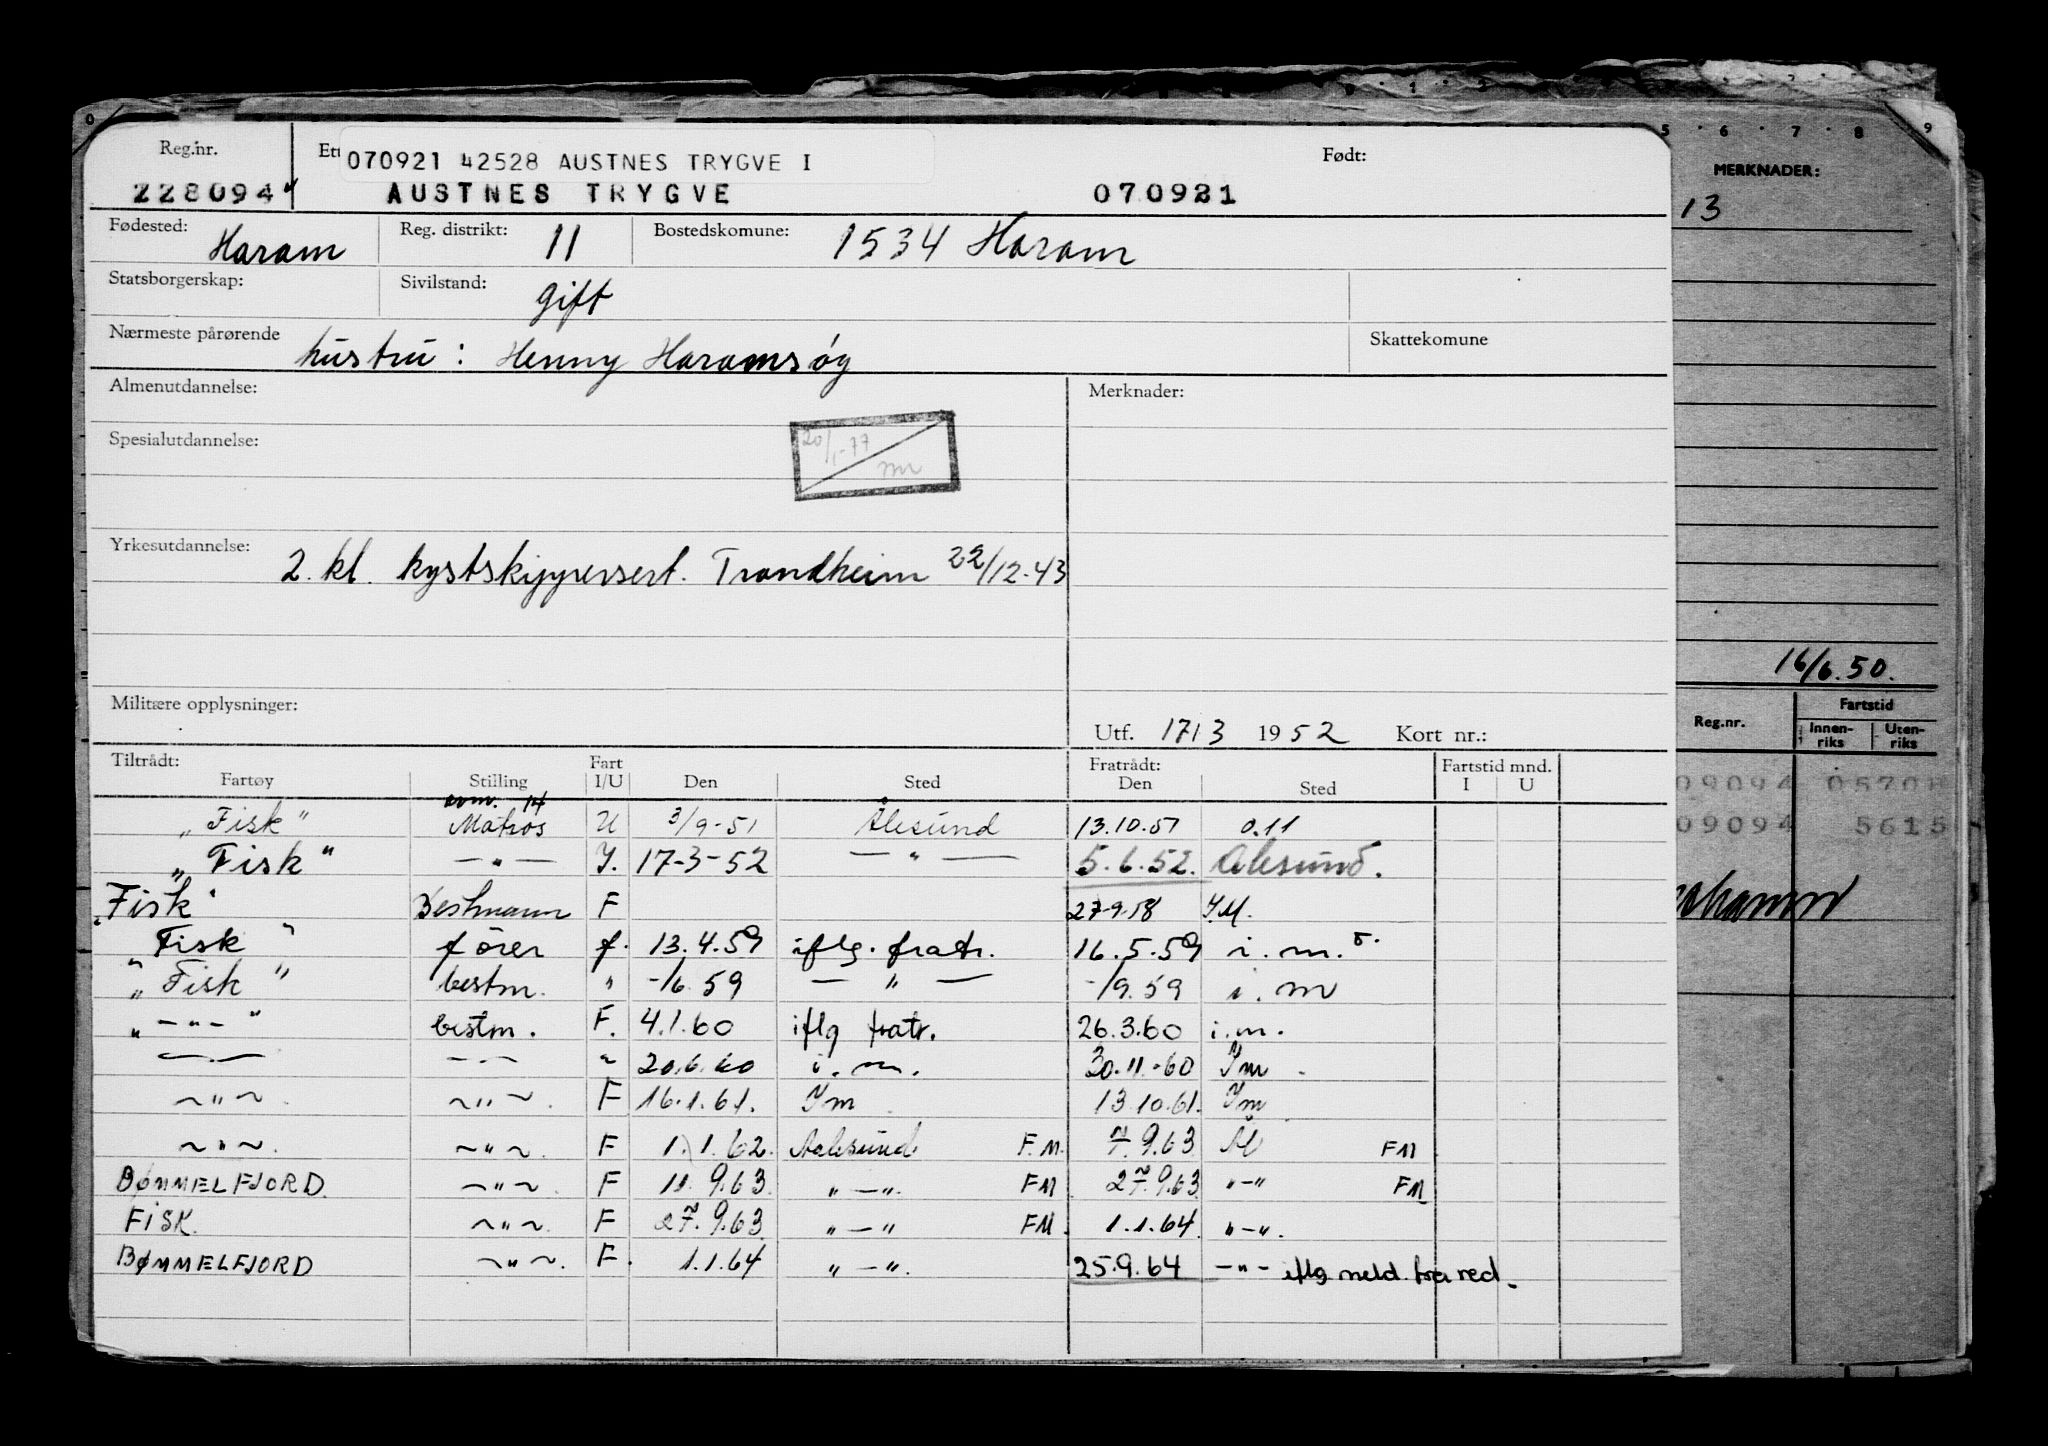 Reg.nr. Ett 070921 42528 AUSTNES TRYGVE I Født:
228094 AUSTNES TRYGVE 070921
Fødested: Haram Reg. distrikt: 11 Bostedskomune: 1534 Haram
Statsborgerskap: Sivilstand: gift
Nærmeste pårørende hustru: Henny Haramsøy Skattekomune
Almenutdannelse: Merknader:
Spesialutdannelse:
20/1-77
Yrkesutdannelse: 2. kl. kystskippersert. Trondheim 22/12-43
Militære opplysninger:
Utf. 17/3 1952 Kort nr.:
Tiltrådt: Fratrådt: Fartstid mnd.
Fartøy Stilling Fart I/U Den Sted Den Sted I U
„Fisk" Matros U 3/9-51 Ålesund 13.10.51 0.11
„Fisk" — " — I. 17-3-52 — " — 5.6.52. Ålesund.
„Fisk" Bestmann F 27-9-58 I.M.
"Fisk" fører f. 13.4.59 iflg. fratr. 16.5.59 i.m.
„Fisk" bestm. " -/6.59 — " — -/9.59 i.m
„-"-" bestm. F. 4.1.60 iflg fratr. 26.3.60 i.m.
— " — — " — " 20.6.60 i.m. 30.11.-60 Im
~ " ~ ~ " ~. F 16.1.61. Im 13.10.61. Im
~ " ~. ~ " ~. F 1.1.62. Aalesund F.M. 7.9.63 Ål FM
BØMMELFJORD. ~ " ~. F 11.9.63. " — ". FM 27.9.63 "-" FM
FISK. ~ " ~. F 27.9.63 " — " FM. 1.1.64 "-".
BØMMELFJORD ~ " ~. F. 1.1.64 " — ". 25.9.64 -"- iflg meld. fra red.
MERKNADER:
13
16/6.50.
Reg.nr. Fartstid
Innenriks Utenriks
09094 0570
09094 5615